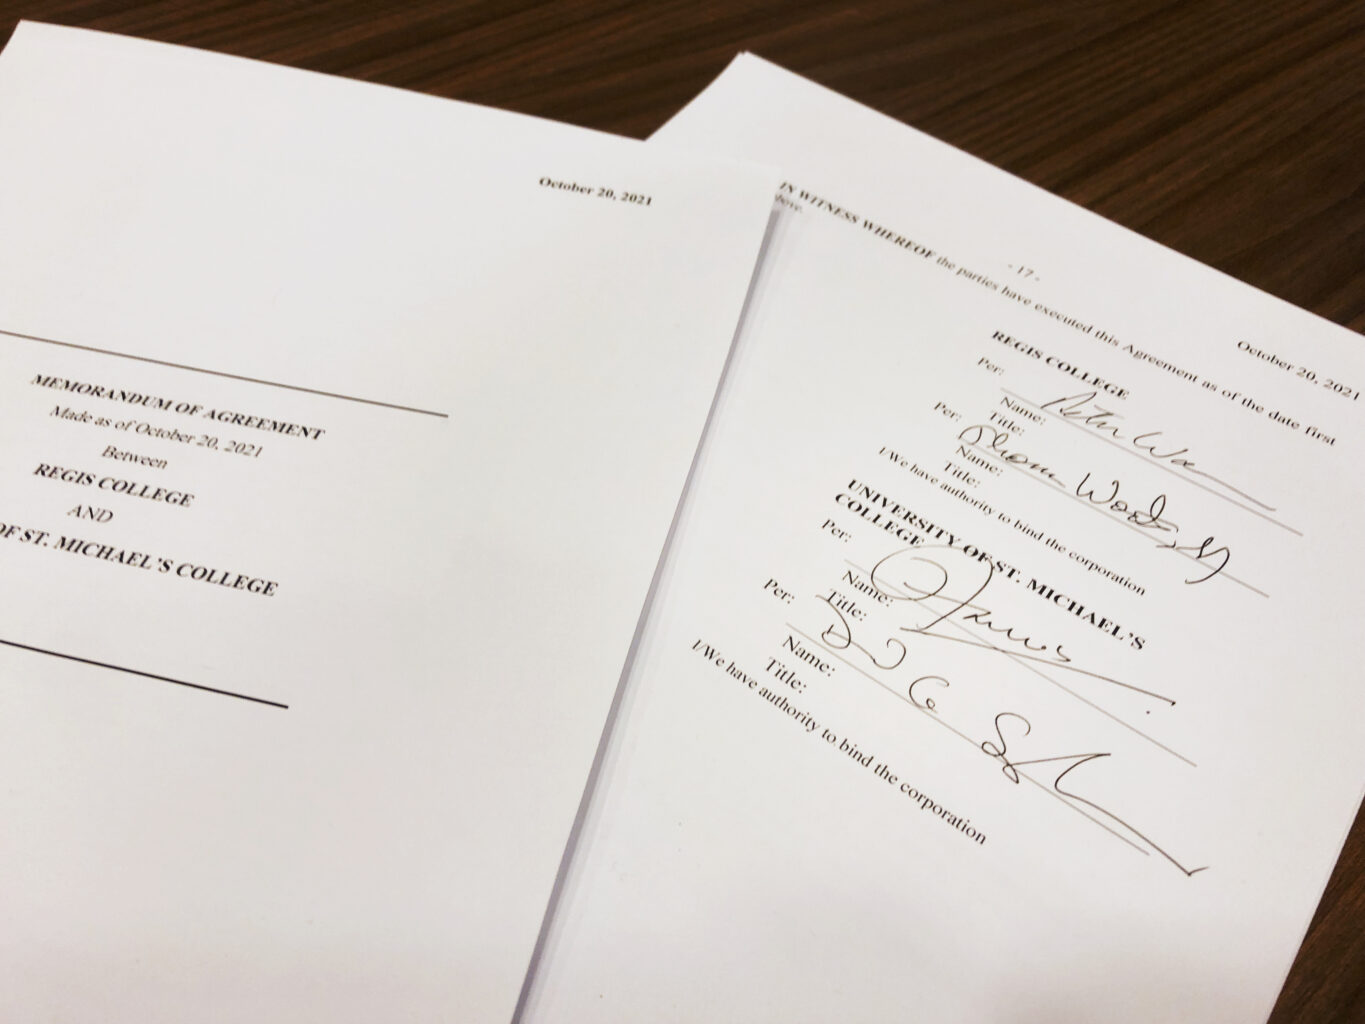 October 20, 2021
MEMORANDUM OF AGREEMENT
Made as of October 20, 2021
Between
REGIS COLLEGE
AND
OF ST. MICHAEL'S COLLEGE
- 17 -
October 20, 2021
IN WITNESS WHEREOF the parties have executed this Agreement as of the date first
above.
REGIS COLLEGE
Per:
Name:
Title:
Per:
Thomas Worcester, SJ
Name:
Title:
I/We have authority to bind the corporation
UNIVERSITY OF ST. MICHAEL'S
COLLEGE
Per:
Name:
Title:
Per:
Name:
Title:
I/We have authority to bind the corporation